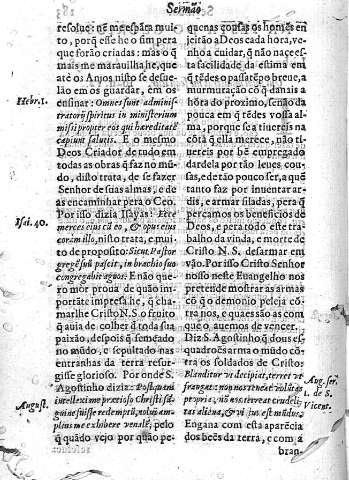 Sermão
resolue: nẽ me espãta mui-
to, porq̃ esse he o fim pera
que forão criadas: mas o q̃
mais me marauilha he, que
até os Anjos nisto se desue-
lão em os guardar, em os
ensinar: Omnes sunt adminis-
tratorij spiritus in ministerium
missi propter eos qui hæreditatẽ
capiunt salutis. E o mesmo
Deos Criador de tudo em
todas as obras q̃ faz no mũ-
do, disto trata, de se fazer
Senhor de suas almas, e de
as encaminhar pera o Ceo.
Por isso dizia Isayas: Ecce
merces eius cũ eo, & opus eius
coram illo, nisto trata, e mui-
to de proposito: Sicut Pastor
gregẽ suũ pascit, in brachio suo
congregabit agnos. E não que-
ro mòr proua de quão im-
portãte impresa he, q̃ cha-
marlhe Cristo N. S. o fruito
q̃ auia de colher q̃ toda sua
paixão, despois q̃ semeado
no mũdo, e sepultado nas
entranhas da terra resur-
gisse glorioso. Por onde S.
Agostinho dizia: Postquam
intellexi me prætioso Christi sã-
guine fuisse redemptũ, nolui am-
plius me exhibere venalẽ, pelo
q̃ quãdo vejo por quão pe-
Hebr. 1.
Isai. 40.
August.
quenas cousas os homẽs en-
jeitão a Deos cada hora, ve-
nho a cuidar, q̃ não nace es-
ta facilidade da estima em
q̃ tẽdes o passatẽpo breue, a
murmuração cõ q̃ danais a
hõra do proximo, senão da
pouca em q̃ tẽdes vossa al-
ma, porque se a tiuereis na
cõta q̃ ella merece, não ti-
uereis por bẽ empregado
dardela por tão leues cou-
sas, e de tão pouco ser, a que
tanto faz por inuentar ar-
dis, e armar siladas, pera q̃
percamos os beneficios de
Deos, e pera todo este tra-
balho da vinda, e morte de
Cristo N. S. desarmar em
vão. Por isso Cristo Senhor
nosso neste Euangelho nos
pretende mostrar as armas
cõ q̃ o demonio peleja cõ-
tra nos, e quaes são as com
que o auemos de vencer.
Diz S. Agostinho q̃ dous es-
quadroẽs arma o mũdo cõ-
tra os soldados de Cristo:
Blanditur vt decipiat, terret vt
frangat: non nos teneat volũtas
propria, nõ nos terreat crudeli-
tas aliena, & vi ius est mũdus.
Engana com esta aparẽcia
dos beẽs da terra, e com a
bran-
Aug. ser.
1. de S.
Vicent.